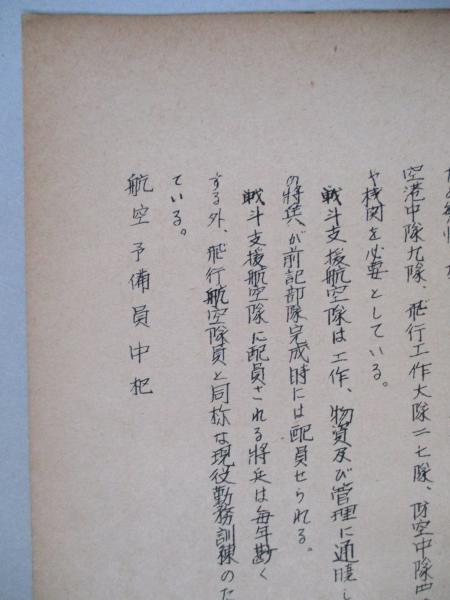 空港中隊九隊、飛行工作大隊二七隊、防空中隊四
や機関を必要としている。
戦斗支援航空隊は工作、物資及び管理に通暁し
の将兵が前記部隊完成時には配員せられる。
戦斗支援航空隊に配員される将兵は毎年尠く
する外、飛行航空隊員と同称な現役勤務訓練のた
ている。
航空予備員中杞